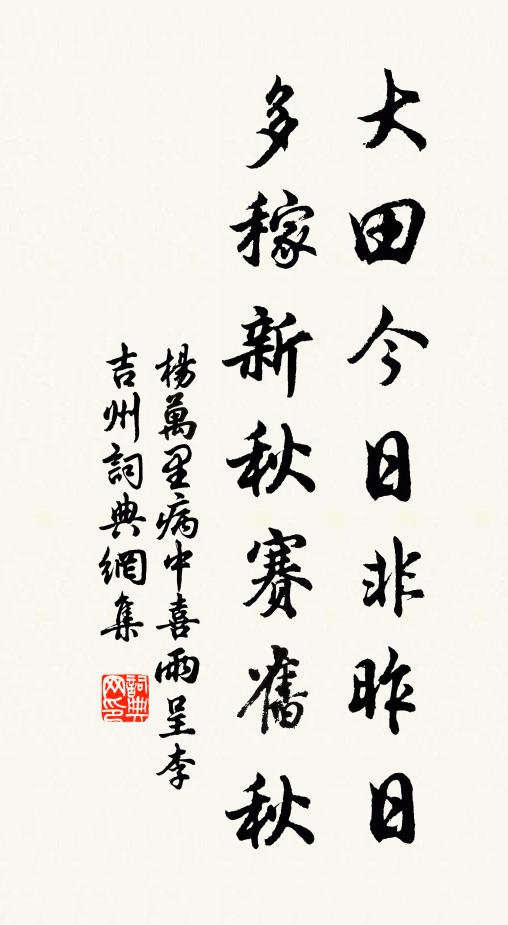 大田今日非昨日
多稼新秋賽舊秋
楊萬里病中喜雨呈李
吉州詞典網集
詞典网印